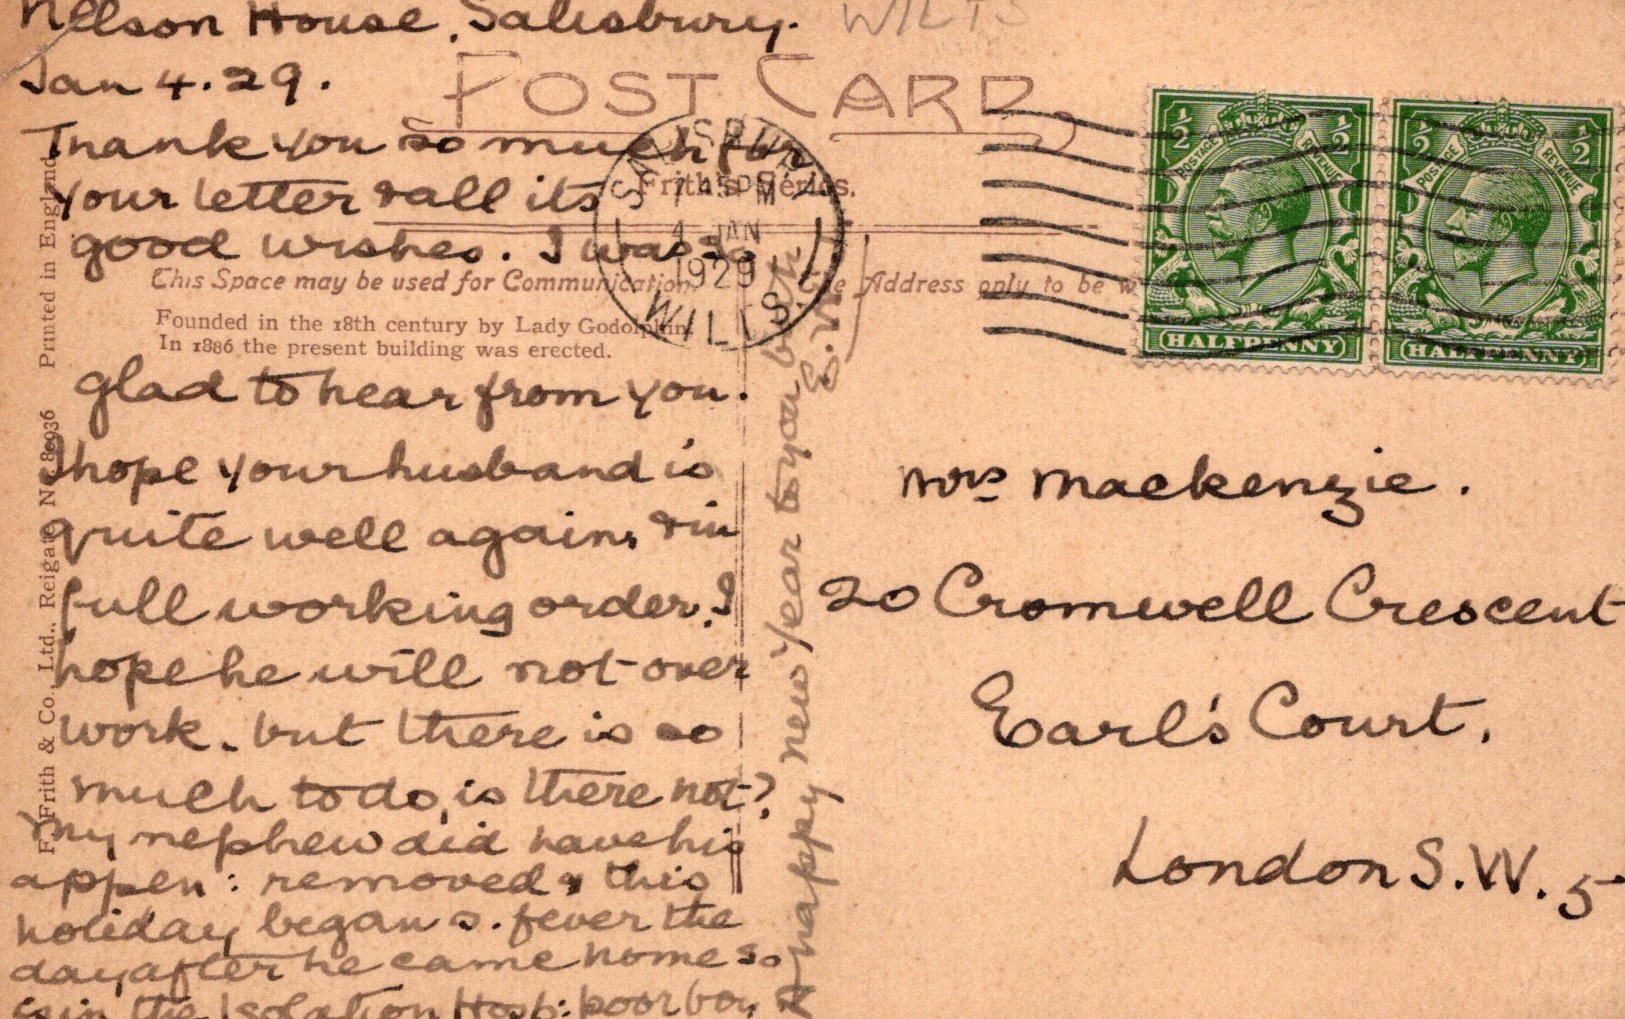 Nelson House, Salisbury. WILTS
Jan 4. 29.
POST CARD
Thank you so much for
Frith's Series.
your letter & all its
good wishes. I was so
This Space may be used for Communication. The Address only to be w
Founded in the 18th century by Lady Godolphin.
In 1886 the present building was erected.
glad to hear from you.
I hope your husband is
quite well again, & in
full working order. I
hope he will not over
work. but there is so
much to do, is there not?
my nephew did have his
appen: removed & this
holiday began s. fever the
day after he came home so
is in the Isolation Hosp: poor boy
A happy new year to you both
E.V.
F. Frith & Co., Ltd., Reigate. No. 80936 Printed in England
SALISBURY
7 45 PM
4 JAN
1929
WILTS.
½ ½
POSTAGE REVENUE
HALFPENNY
½ ½
POSTAGE REVENUE
HALFPENNY
Mrs Mackenzie.
20 Cromwell Crescent
Earl's Court.
London S.W. 5